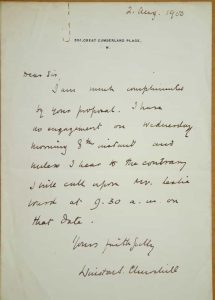 2. Aug. 1900
GREAT CUMBERLAND PLACE.
W.
Dear Sir,
I am much complimented
by your proposal. I have
no engagement on Wednesday
morning 8th instant and
unless I hear to the contrary
I will call upon Mr. Leslie
Ward at 9.30 a.m. on
that date.
Yours faithfully
Winston S. Churchill